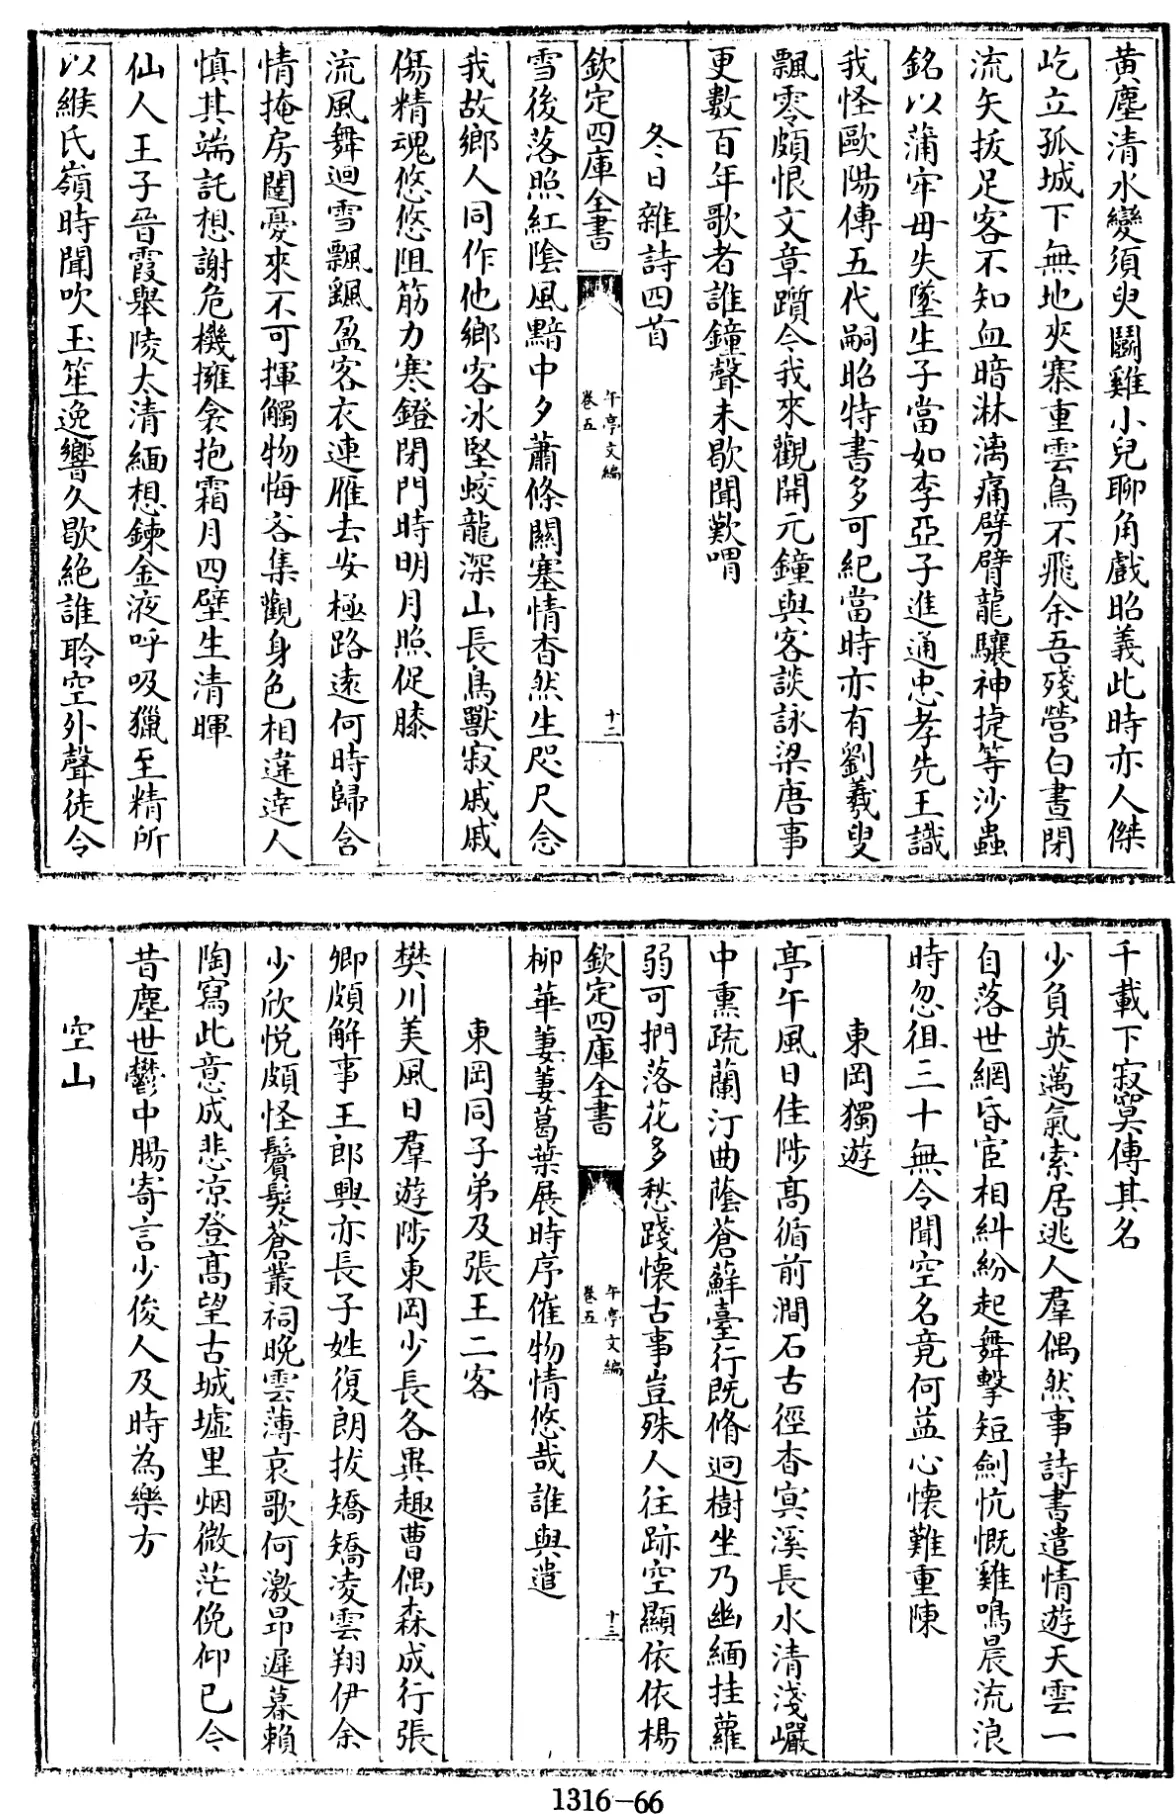 黄塵清水變須臾鬬雞小兒聊角戲昭義此時亦人傑
屹立孤城下無地夾寨重雲鳥不飛余吾殘營白晝閉
流矢拔足客不知血暗淋漓痛劈臂龍驤神捷等沙蟲
銘以蒲牢毋失墜生子當如李亞子進通忠孝先王識
我怪歐陽傳五代嗣昭特書多可紀當時亦有劉羲叟
飄零頗恨文章躓今我來觀開元鐘與客談詠梁唐事
更數百年歌者誰鐘聲未歇聞歎喟
冬日雜詩四首
欽定四庫全書
午亭文編
卷五
十二
雪後落照紅陰風黯中夕蕭條關塞情杳然生咫尺念
我故鄉人同作他鄉客冰堅蛟龍深山長鳥獸寂戚戚
傷精魂悠悠阻筋力寒鐙閉門時明月照促膝
流風舞迴雪飄颻盈客衣連雁去安極路遠何時歸含
情掩房闥憂來不可揮觸物悔吝集觀身色相違達人
慎其端託想謝危機擁衾抱霜月四壁生清暉
仙人王子晉霞舉陵太清緬想鍊金液呼吸獵至精所
以緱氏嶺時聞吹玉笙逸響久歇絶誰聆空外聲徒令
千載下寂寞傳其名
少負英邁氣索居逃人羣偶然事詩書遣情遊天雲一
自落世網昏宦相糾紛起舞擊短劍忼慨雞鳴晨流浪
時忽徂三十無令聞空名竟何益心懷難重陳
東岡獨遊
亭午風日佳陟髙循前澗石古徑杳冥溪長水清淺巖
中熏疏蘭汀曲蔭蒼蘚臺行既脩迥樹坐乃幽緬挂蘿
弱可捫落花多愁踐懷古事豈殊人往跡空顯依依楊
欽定四庫全書
午亭文編
卷五
十三
柳華萋萋葛葉展時序催物情悠哉誰與遣
東岡同子弟及張王二客
樊川美風日羣遊陟東岡少長各異趣曹偶森成行張
卿頗解事王郎興亦長子姓復朗拔矯矯凌雲翔伊余
少欣悦頗怪鬢髮蒼叢祠晚雲薄哀歌何激昂遲暮賴
陶寫此意成悲凉登髙望古城墟里烟微茫俛仰已今
昔塵世鬱中腸寄言少俊人及時為樂方
空山
1316-66